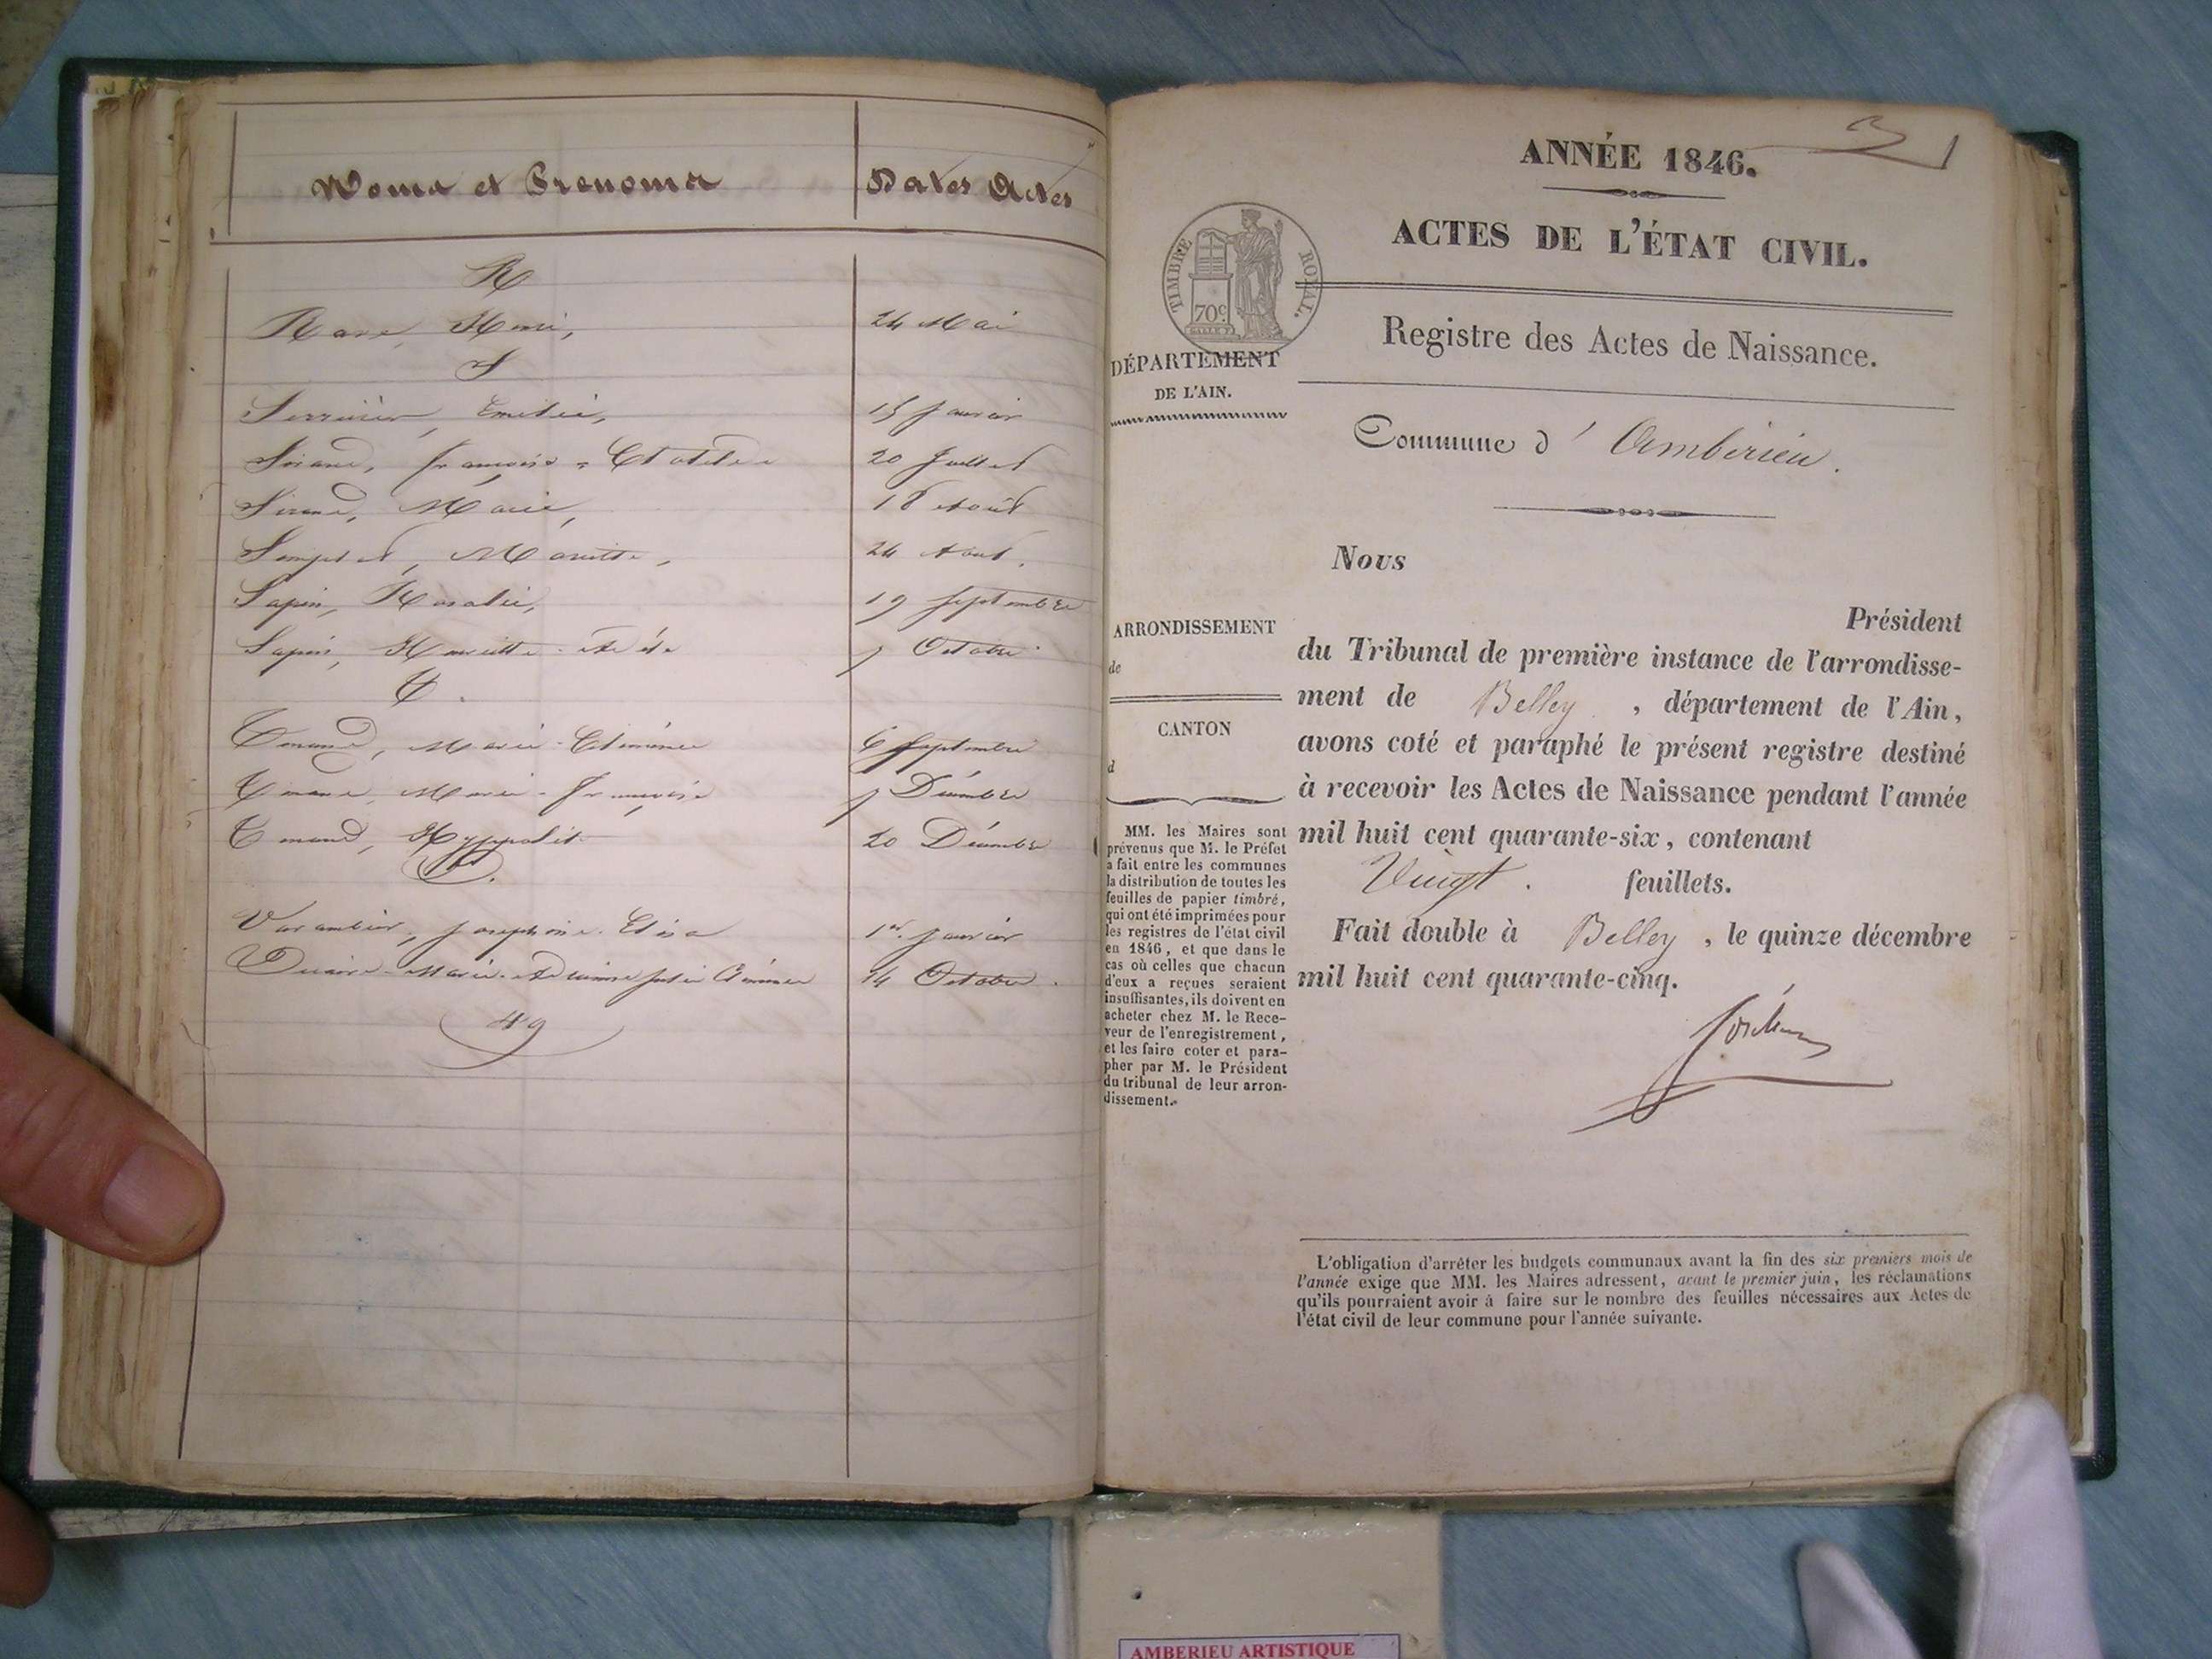 Noms et Prenoms
Dates Actes
R
Rave, Henri,
24 Mai
S
Emilie,
15 Janvier
françoise - Clotilde
20 Juillet
Sirand, Marie,
18 Août
Mariette,
24 Août.
Sapin, Rosalie,
19 Septembre
Sapin, Henriette
Octobre
T.
Tenand, Marie
6 Septembre
Tenand, Marie - françoise
Décembre
Tenand, Hyppolite
20 Décembre
V.
Varambier, Josephine - Elisa
1er. Janvier
Marie
14 Octobre.
49
ANNÉE 1846.
ACTES DE L'ÉTAT CIVIL.
TIMBRE ROYAL.
70c
DÉPARTEMENT
DE L'AIN.
Registre des Actes de Naissance.
Commune d' Ambérieu.
Nous
Président
du Tribunal de première instance de l'arrondisse-
ment de Belley, département de l'Ain,
avons coté et paraphé le présent registre destiné
à recevoir les Actes de Naissance pendant l'année
mil huit cent quarante-six, contenant
Vingt. feuillets.
Fait double à Belley, le quinze décembre
mil huit cent quarante-cinq.
ARRONDISSEMENT
de
CANTON
d
MM. les Maires sont
prévenus que M. le Préfet
a fait entre les communes
la distribution de toutes les
feuilles de papier timbré,
qui ont été imprimées pour
les registres de l'état civil
en 1846, et que dans le
cas où celles que chacun
d'eux a reçues seraient
insuffisantes, ils doivent en
acheter chez M. le Rece-
veur de l'enregistrement,
et les faire coter et para-
pher par M. le Président
du tribunal de leur arron-
dissement.
L'obligation d'arrêter les budgets communaux avant la fin des six premiers mois de
l'année exige que MM. les Maires adressent, avant le premier juin, les réclamations
qu'ils pourraient avoir à faire sur le nombre des feuilles nécessaires aux Actes de
l'état civil de leur commune pour l'année suivante.
AMBERIEU ARTISTIQUE